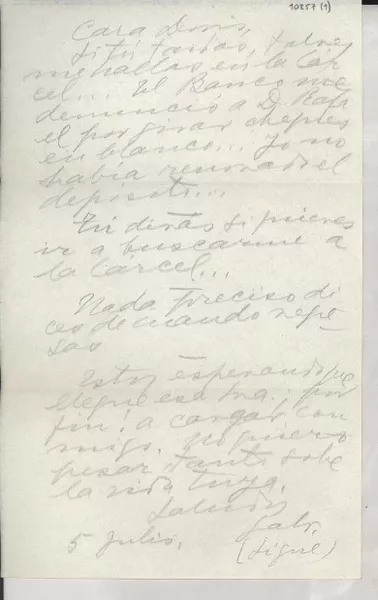 10257 (1)
Cara Doris,
Si tú tardas, tal vez
me hallas en la Cár
cel... El Banco me
denunció a D. Rafa
el por girar cheques
en blanco... Yo no
había renovado el
depósito...
Tú dirás si quieres
ir a buscarme a
la Cárcel...
Nada preciso di
ces de cuando regre
sas
Estoy esperando que
llegue esa Sra. por
fin! a cargar con
migo. No quiero
pesar tanto sobre
la vida tuya.
Saludos
Gabr.
5 Julio.
(Sigue)